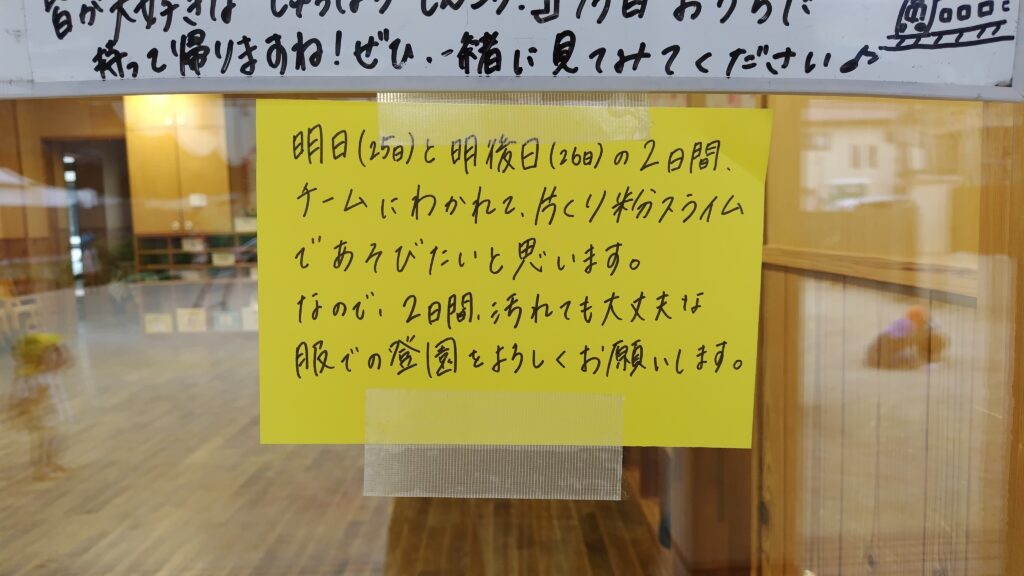 皆が大好きな『しゅっぱつ しんこう!』今日おうちに
持って帰りますね!ぜひ、一緒に見てみてください♪
明日(25日)と明後日(26日)の2日間、
チームにわかれて、片くり粉スライム
であそびたいと思います。
なので、2日間、汚れても大丈夫な
服での登園をよろしくお願いします。